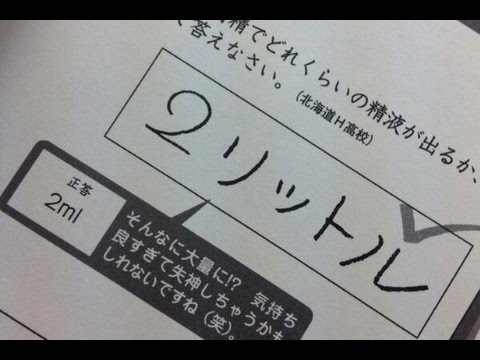 精でどれくらいの精液が出るか、
答えなさい。(北海道H高校)
2リットル
正答
2ml
そんなに大量に!? 気持ち
良すぎて失神しちゃうかも
しれないですね(笑)。